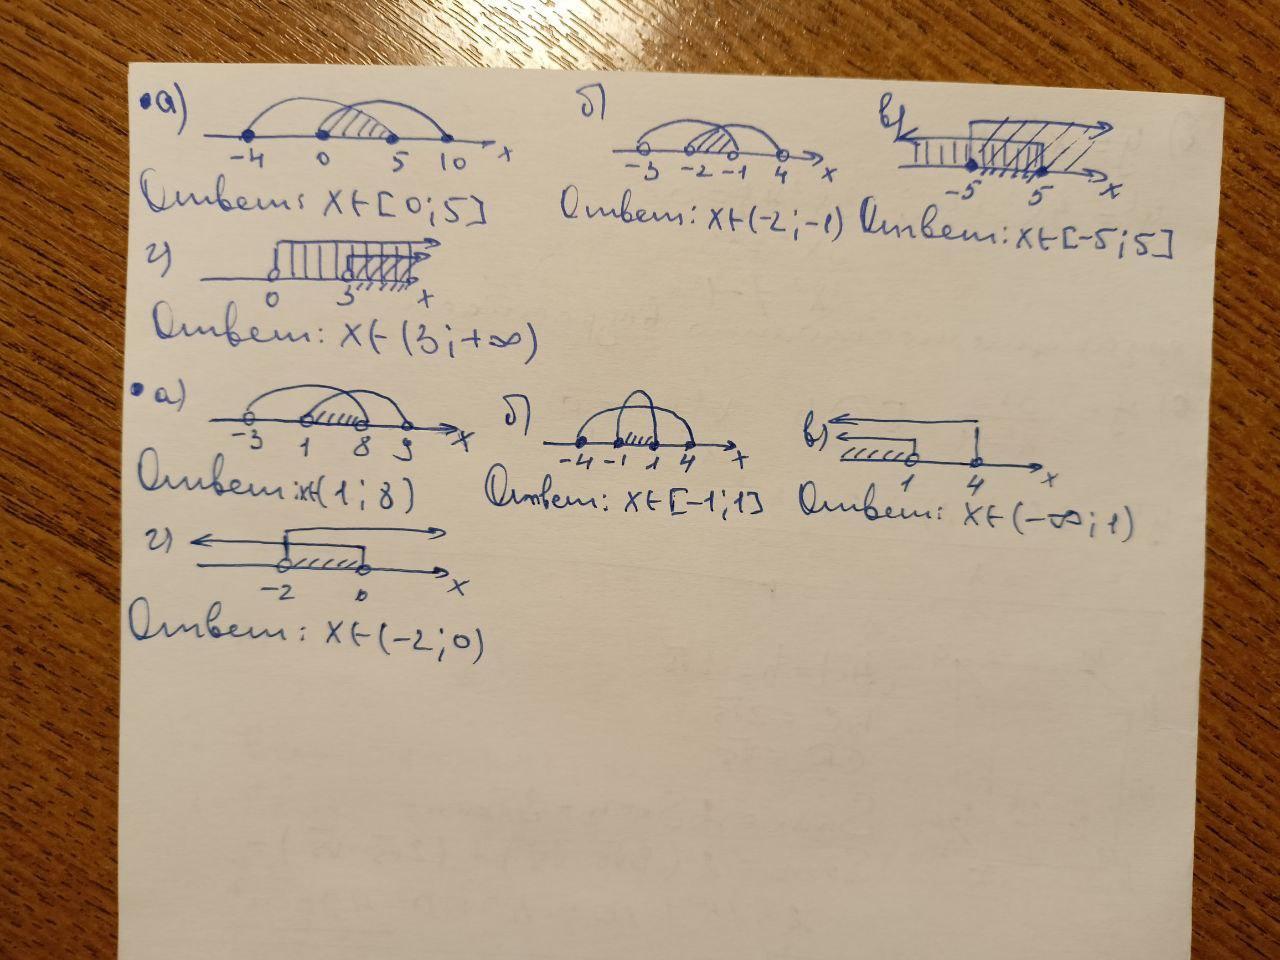 • а) б) в)
-4 0 5 10 x -3 -2 -1 4 x -5 5 x
Ответ: x∈[0;5] Ответ: x∈(-2;-1) Ответ: x∈[-5;5]
г)
0 3 x
Ответ: x∈(3;+∞)
• а) б) в)
-3 1 8 9 x -4 -1 1 4 x 1 4 x
Ответ: x∈(1;8) Ответ: x∈[-1;1] Ответ: x∈(-∞;1)
г)
-2 0 x
Ответ: x∈(-2;0)